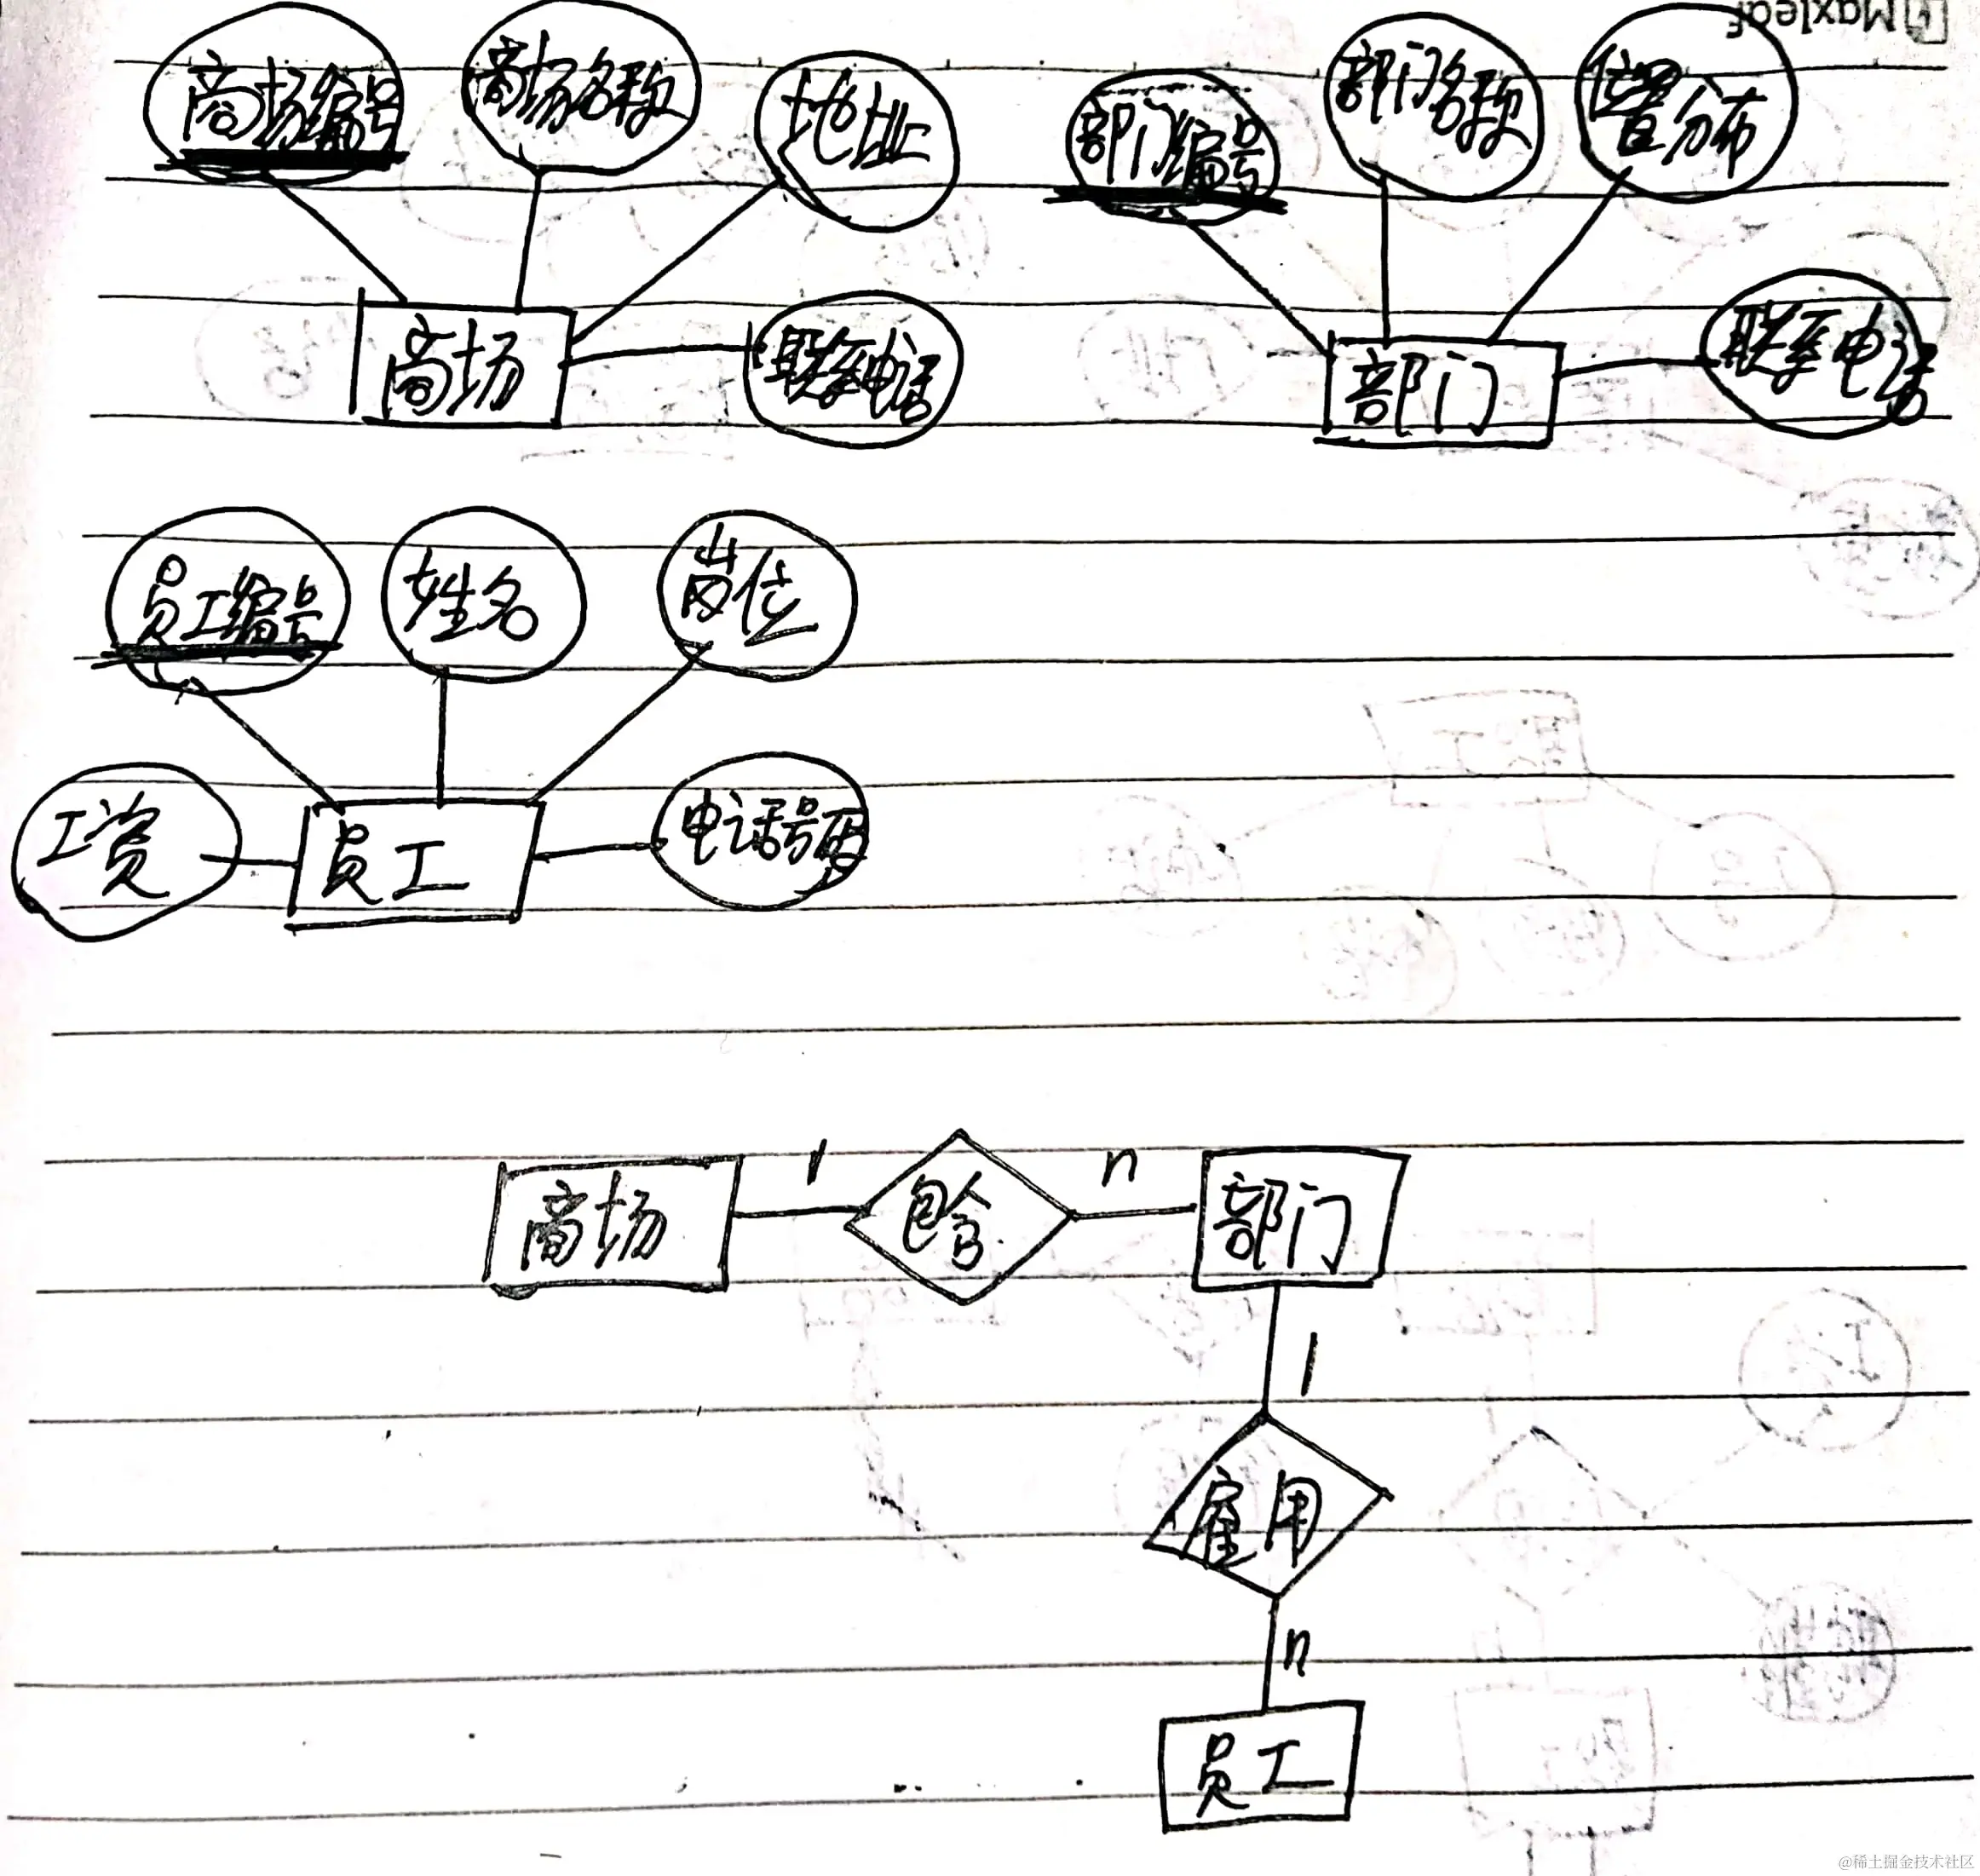 Maxleaf
商场编号 商场名称 地址 部门编号 部门名称 位置分布
商场 联系电话 部门 联系电话
员工编号 姓名 岗位
工资 员工 电话号码
商场 1 包含 n 部门
1
雇用
n
员工
@稀土掘金技术社区